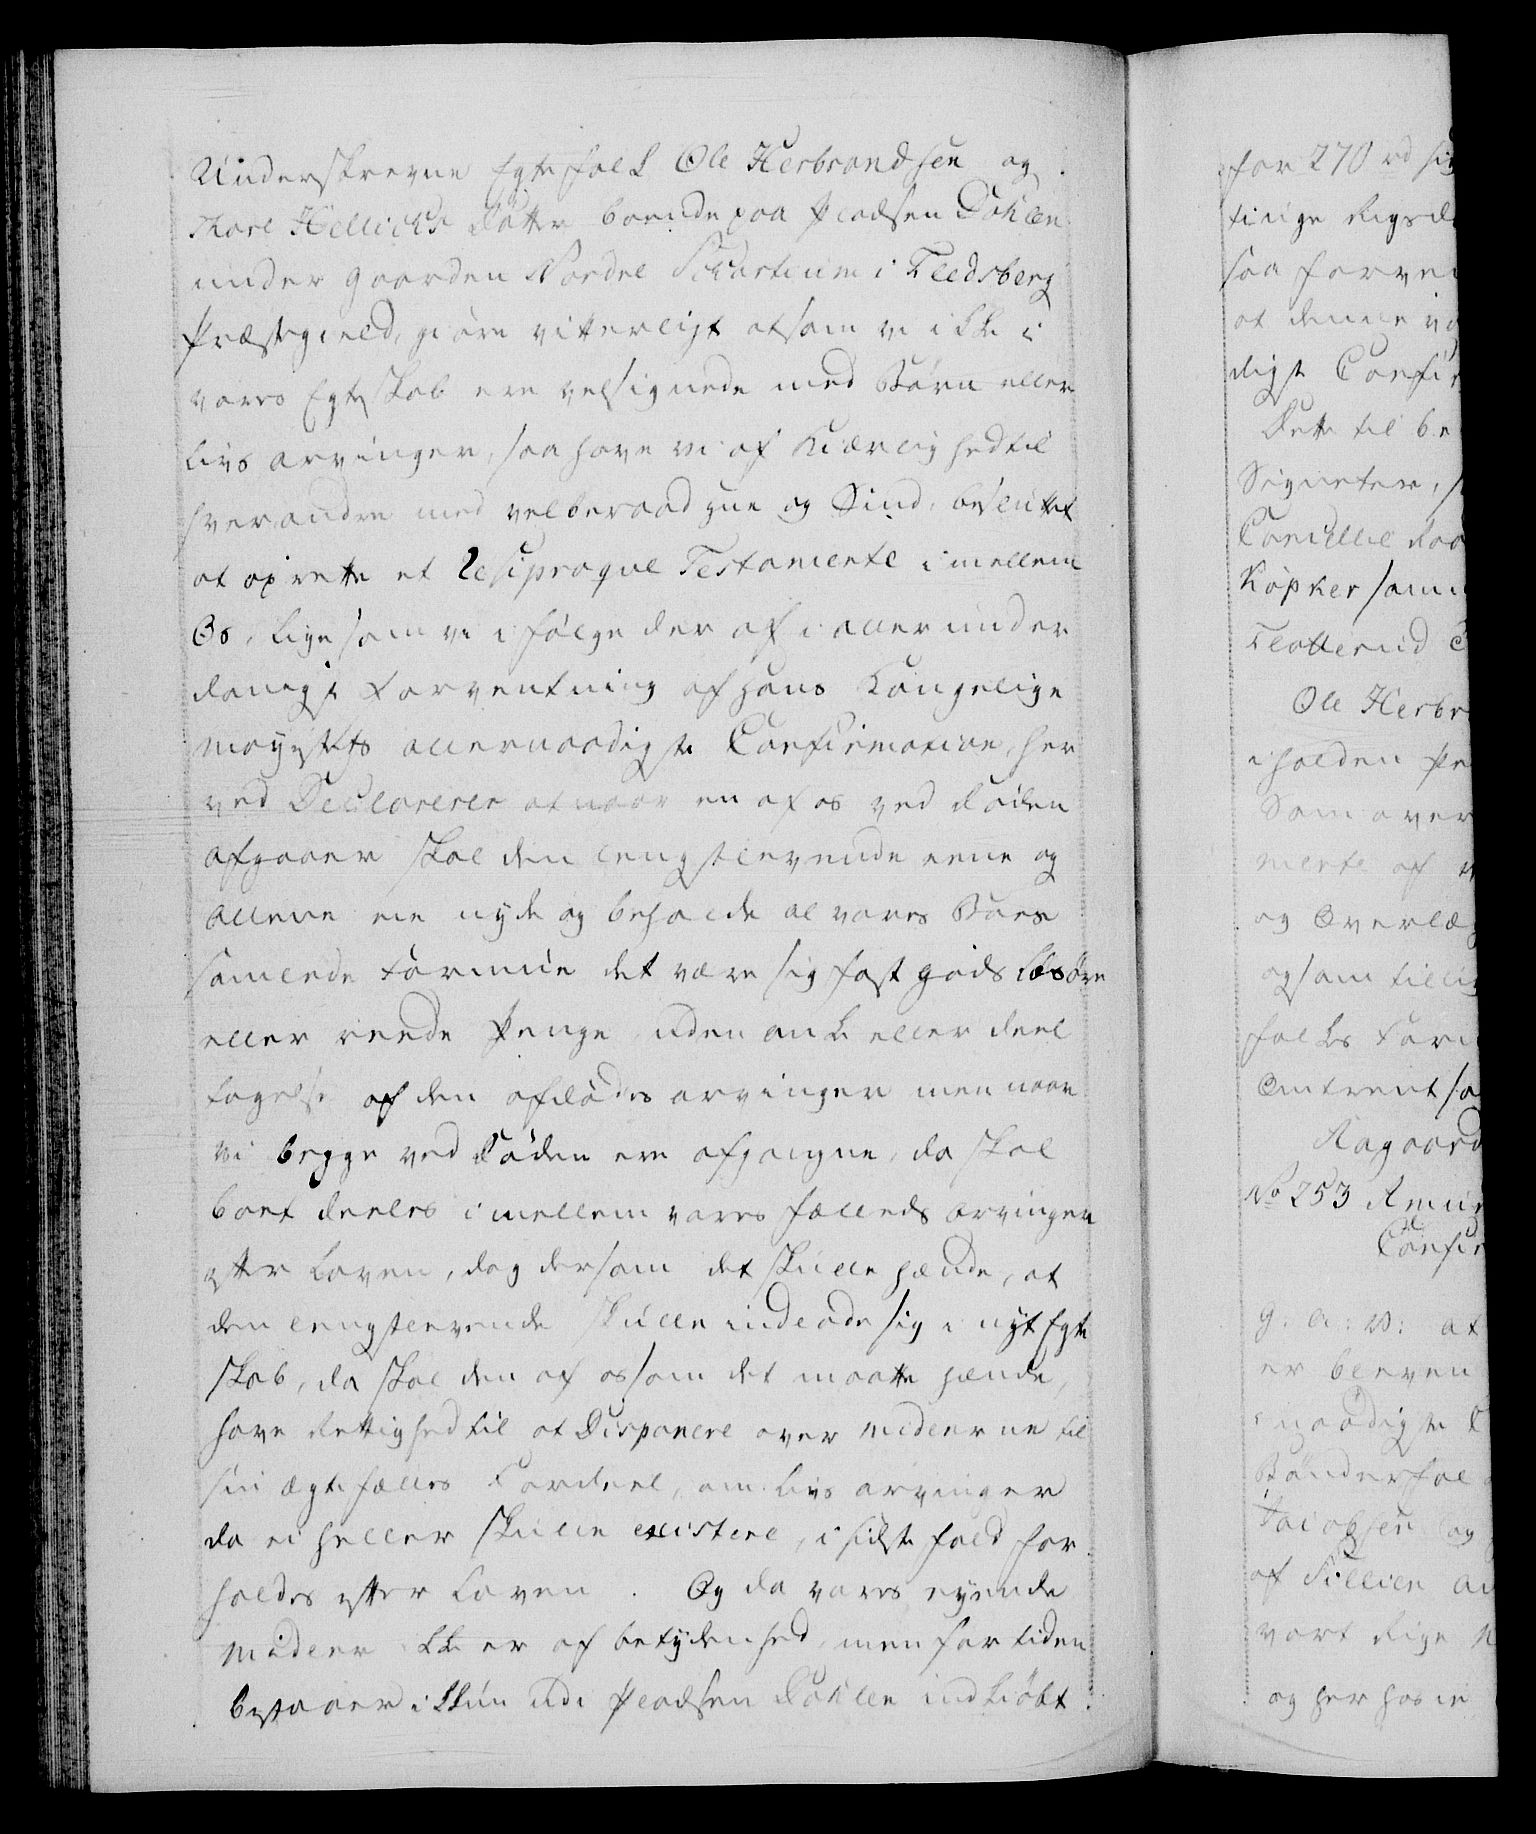 Underskrevne Egtefolk Ole Herbrandsen og
Kari Hellichs Datter boende paa Pladsen Dohlen
under gaarden Nordre Schartum i Fledsberg
Præstegield, giøre vitterligt at som vi ikke i
vores Egteskab ere velsignede med Børn eller
Livs arvinger, saa have vi af Kiærlighed til
hverandre med velberaad hue og Sind, besluttet
at oprette et Resiproque Testamente imellem
Os, ligesom vi i følge der af i allerunder
danigst Forventning af hans Kongelige
Mayestets allernaadigste Confirmation, her
ved Declarerer at naar en af os ved Døden
afgaaer skal den lengstlevende eene og
allene eie nyde og beholde al vores Boes
samlede Formue det være sig fast gods løsøre
eller reede Penge uden anke eller deel
tagelse af den afdødes arvinger men naar
vi begge ved Døden ere afgangne, da skal
boet deeles imellem vores fælleds arvinger
efter Loven, dog dersom det skulle hænde, at
den lengstlevende skulle indlade sig i nyt Egte
skab, da skal den af os som det maatte hænde,
have Rettighed til at Disponere over midlerne til
sin ægtefælles Fordeel, om Livs arvinger
da ei heller skulle existere, i sidste fald for
holdes efter Loven. Og da vores eyende
midler ikke er af betydenhed, men for tiden
bestaaer ikkun udi Pladsen Dohlen indkiøbt
for 270 rd
tinge Rigsd
saa forve
at denne
digst Confir
Dette til be
Signeter,
Cancellie Raa
Köpker sam
Flatterud
Ole Herbr
iholden Pe
Som over
mente af
og Overlæg
og som tillig
folks Form
Omtrent sa
Aagaard
No 253 Amun
Confir
g: a: v: at
er bleven
naadigste
Bønderfol
Jacobsen og
af Sillien
vort Rige N
og her hos in